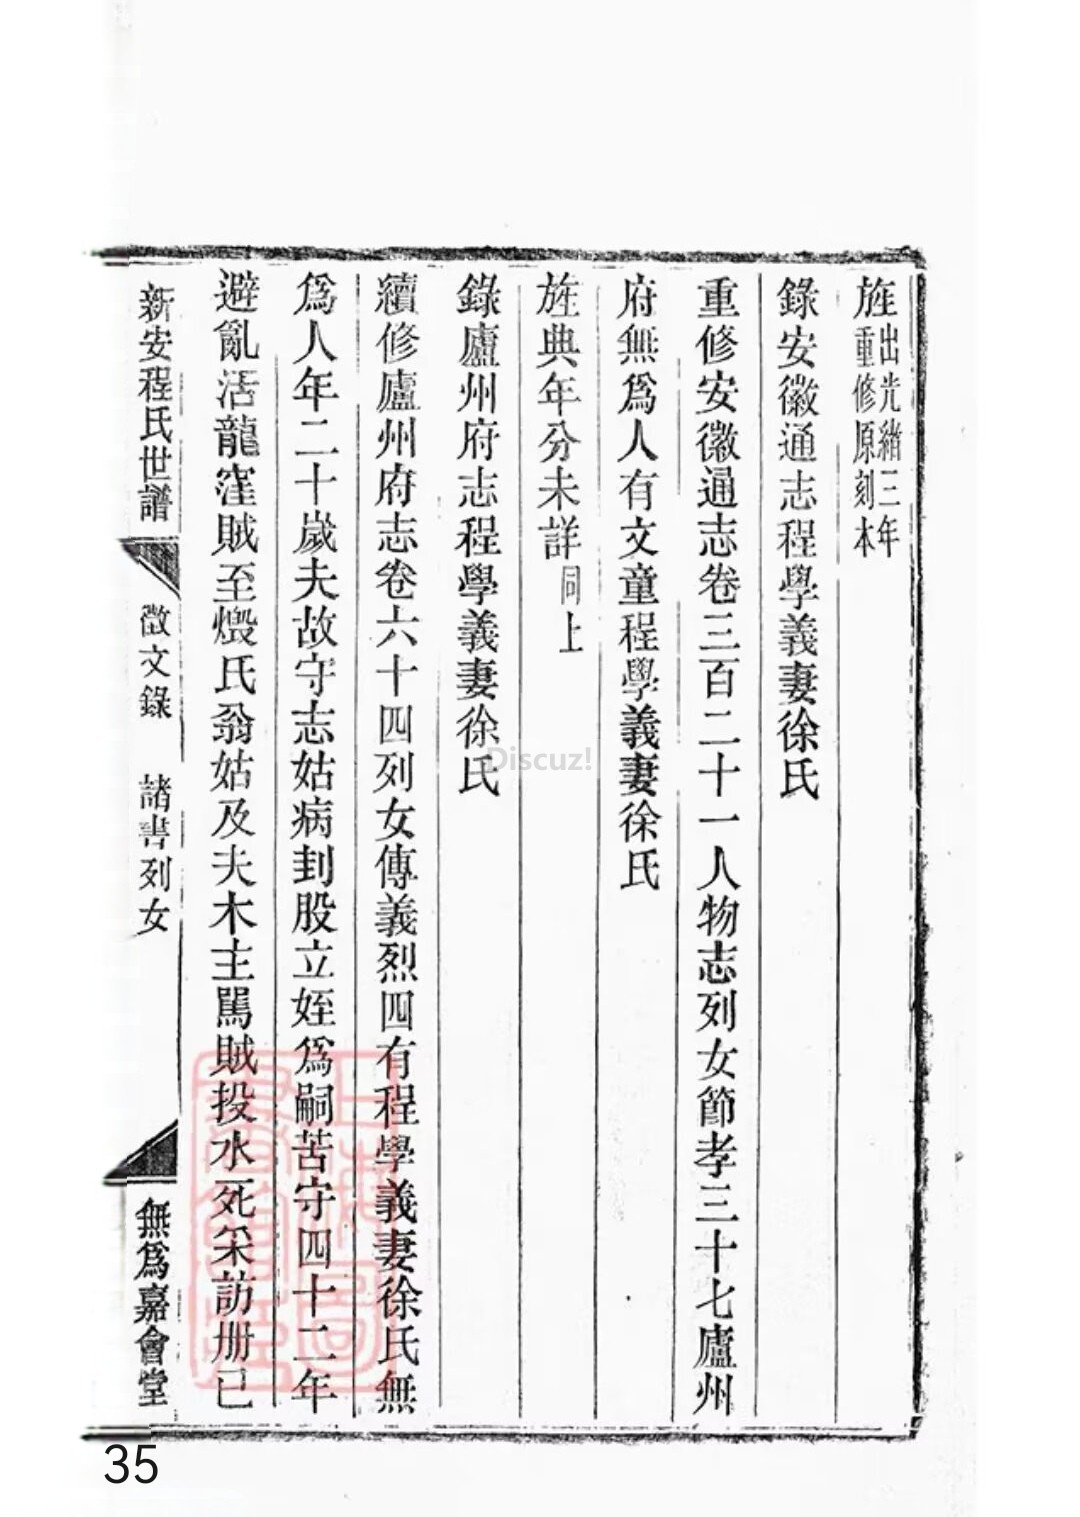 旌出光緒三年重修原刻本
錄安徽通志程學義妻徐氏
重修安徽通志卷三百二十一人物志列女節孝三十七廬州
府無爲人有文童程學義妻徐氏
旌典年分未詳同上
錄廬州府志程學義妻徐氏
續修廬州府志卷六十四列女傳義烈四有程學義妻徐氏無
爲人年二十歲夫故守志姑病刲股立姪爲嗣苦守四十二年
避亂活龍窪賊至燬氏翁姑及夫木主罵賊投水死采訪册已
新安程氏世譜 徵文錄 諸書列女 無爲嘉會堂
Discuz!
35